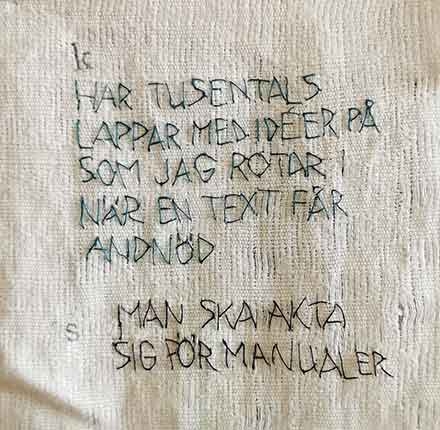 k
HAR TUSENTALS
LAPPAR MED IDÉER PÅ
SOM JAG ROTAR I
NÄR EN TEXT FÅR
ANDNÖD
s MAN SKA AKTA
SIG FÖR MANUALER